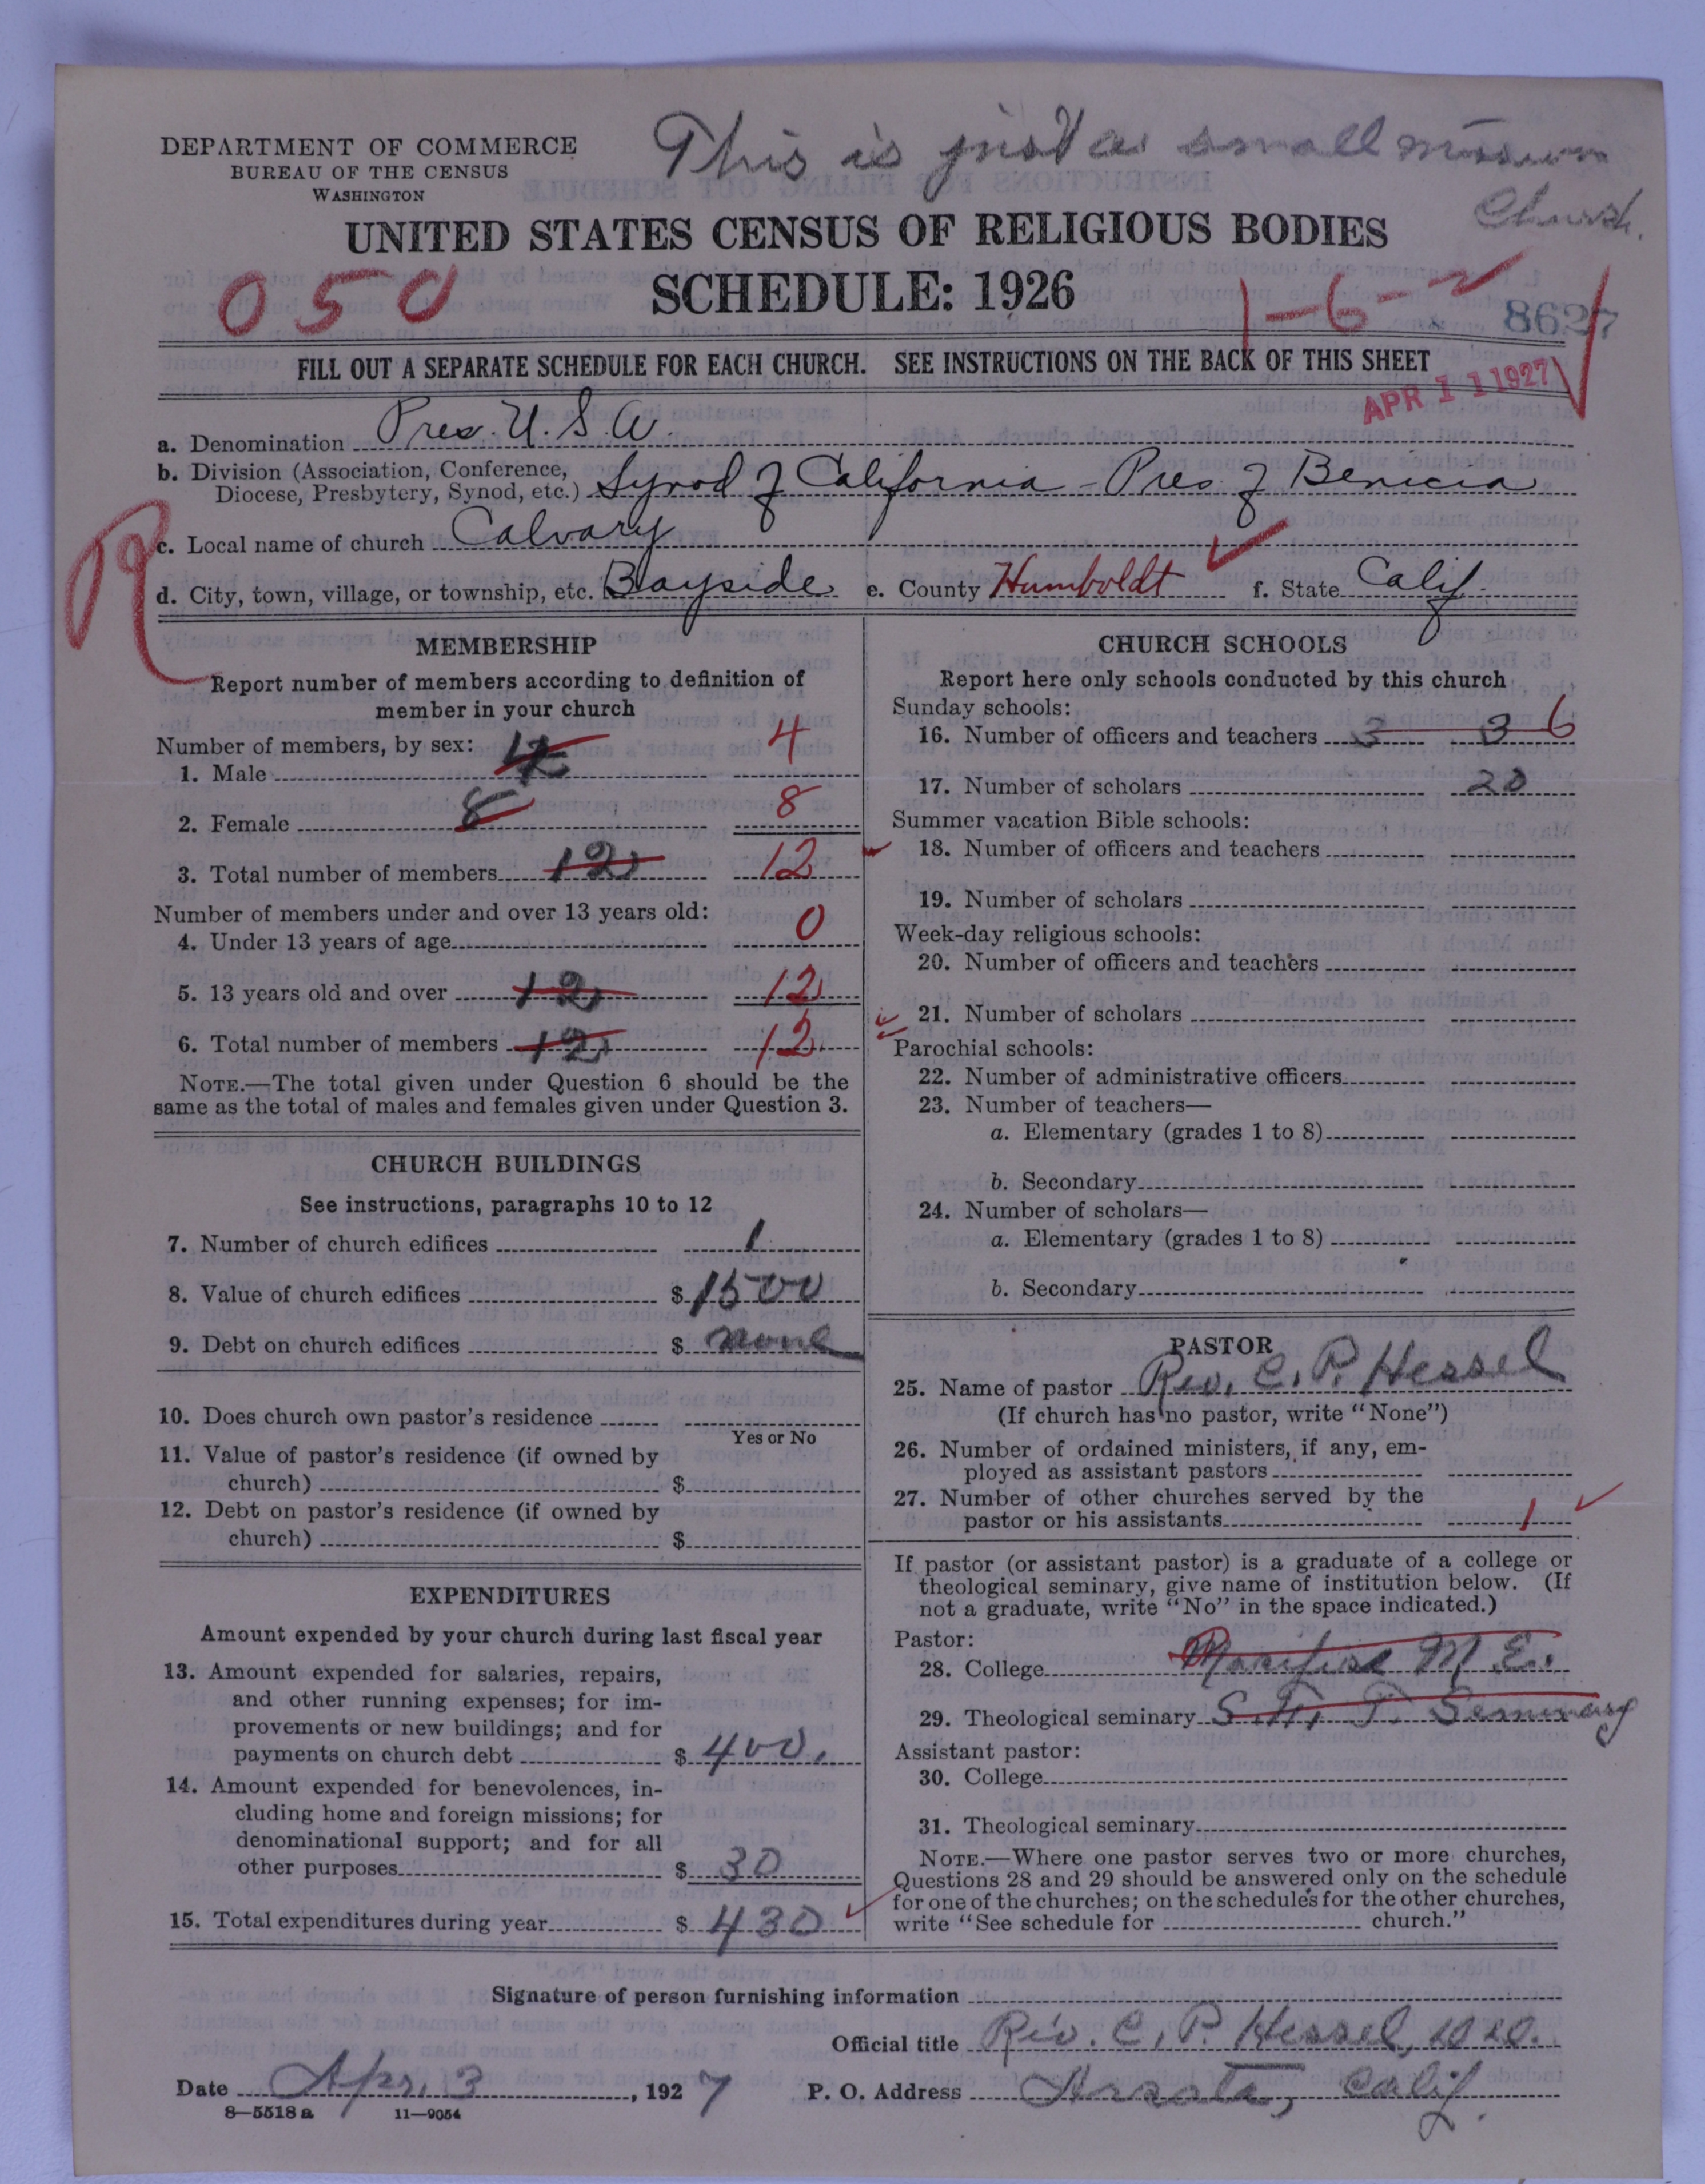 This is just a small mission
Church.
DEPARTMENT OF COMMERCE
BUREAU OF THE CENSUS
WASHINGTON
UNITED STATES CENSUS OF RELIGIOUS BODIES
SCHEDULE: 1926
050
1-6-2
8627
FILL OUT A SEPARATE SCHEDULE FOR EACH CHURCH. SEE INSTRUCTIONS ON THE BACK OF THIS SHEET
APR 11 1927
a. Denomination Pres. U.S.A.
b. Division (Association, Conference,
Diocese, Presbytery, Synod, etc.) Synod of California - Pres. of Benicia
R
c. Local name of church Calvary
d. City, town, village, or township, etc. Bayside e. County Humboldt f. State Calif.
MEMBERSHIP
Report number of members according to definition of
member in your church
Number of members, by sex:
1. Male 4 4
2. Female 8 8
3. Total number of members 12 12
Number of members under and over 13 years old:
4. Under 13 years of age 0
5. 13 years old and over 12 12
6. Total number of members 12 12
NOTE.—The total given under Question 6 should be the
same as the total of males and females given under Question 3.
CHURCH BUILDINGS
See instructions, paragraphs 10 to 12
7. Number of church edifices 1
8. Value of church edifices $ 1500
9. Debt on church edifices $ none
10. Does church own pastor's residence
Yes or No
11. Value of pastor's residence (if owned by
church) $
12. Debt on pastor's residence (if owned by
church) $
EXPENDITURES
Amount expended by your church during last fiscal year
13. Amount expended for salaries, repairs,
and other running expenses; for im-
provements or new buildings; and for
payments on church debt $ 400.
14. Amount expended for benevolences, in-
cluding home and foreign missions; for
denominational support; and for all
other purposes $ 30
15. Total expenditures during year $ 430
CHURCH SCHOOLS
Report here only schools conducted by this church
Sunday schools:
16. Number of officers and teachers 3 3 6
17. Number of scholars 20
Summer vacation Bible schools:
18. Number of officers and teachers
19. Number of scholars
Week-day religious schools:
20. Number of officers and teachers
21. Number of scholars
Parochial schools:
22. Number of administrative officers
23. Number of teachers—
a. Elementary (grades 1 to 8)
b. Secondary
24. Number of scholars—
a. Elementary (grades 1 to 8)
b. Secondary
PASTOR
25. Name of pastor Rev. C. P. Hessel
(If church has no pastor, write "None")
26. Number of ordained ministers, if any, em-
ployed as assistant pastors
27. Number of other churches served by the
pastor or his assistants 1
If pastor (or assistant pastor) is a graduate of a college or
theological seminary, give name of institution below. (If
not a graduate, write "No" in the space indicated.)
Pastor:
28. College M. E.
29. Theological seminary S. F. T. Seminary
Assistant pastor:
30. College
31. Theological seminary
NOTE.—Where one pastor serves two or more churches,
Questions 28 and 29 should be answered only on the schedule
for one of the churches; on the schedules for the other churches,
write "See schedule for church."
Signature of person furnishing information
Official title Rev. C. P. Hessel,
Date Apr. 3, 1927 P. O. Address Arcata, Calif.
8—5518a 11—9054